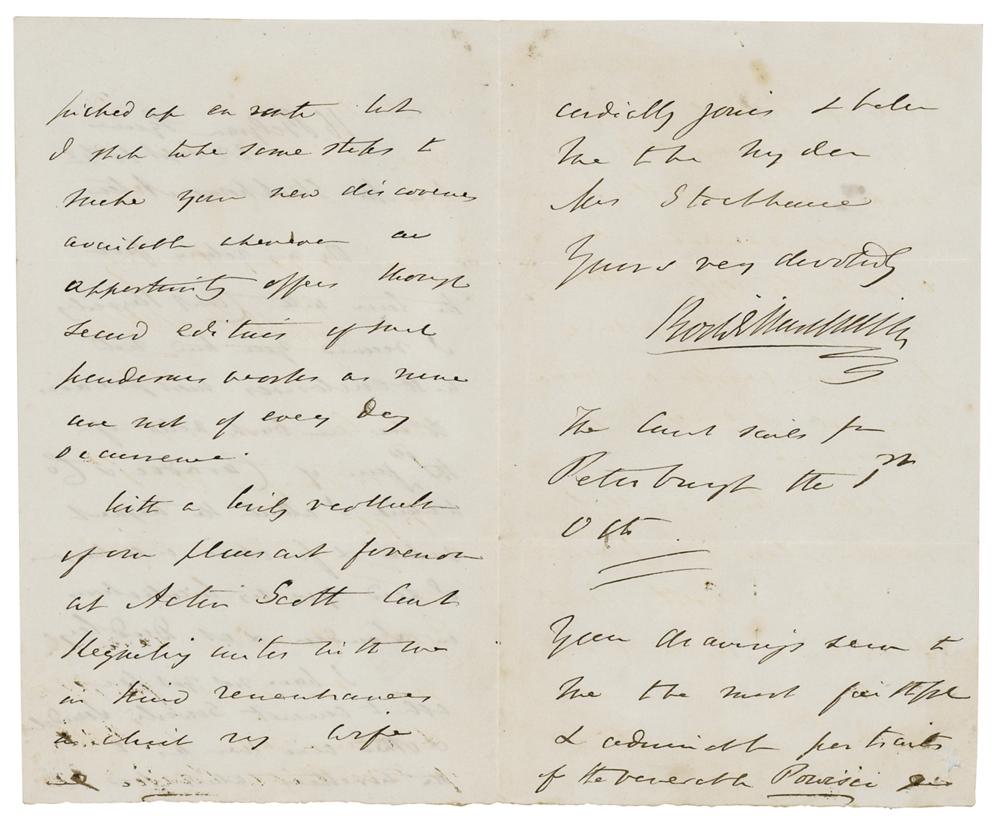 picked up en route but
I shall take some steps to
make your new discoveries
available whenever an
opportunity offers though
second editions of such
ponderous works as mine
are not of every day
occurrence.
With a lively recollection
of our pleasant forenoon
at Acton Scott
unites with me
in kind remembrances
in which my wife
cordially joins & believe
me to be my dear
Mrs Stackhouse
Yours very devotedly
Rod I Murchison
The Count sails for
Petersburgh the 1st
Oct.
Your drawings seem to
me the most faithful
& admirable portraits
of the venerable